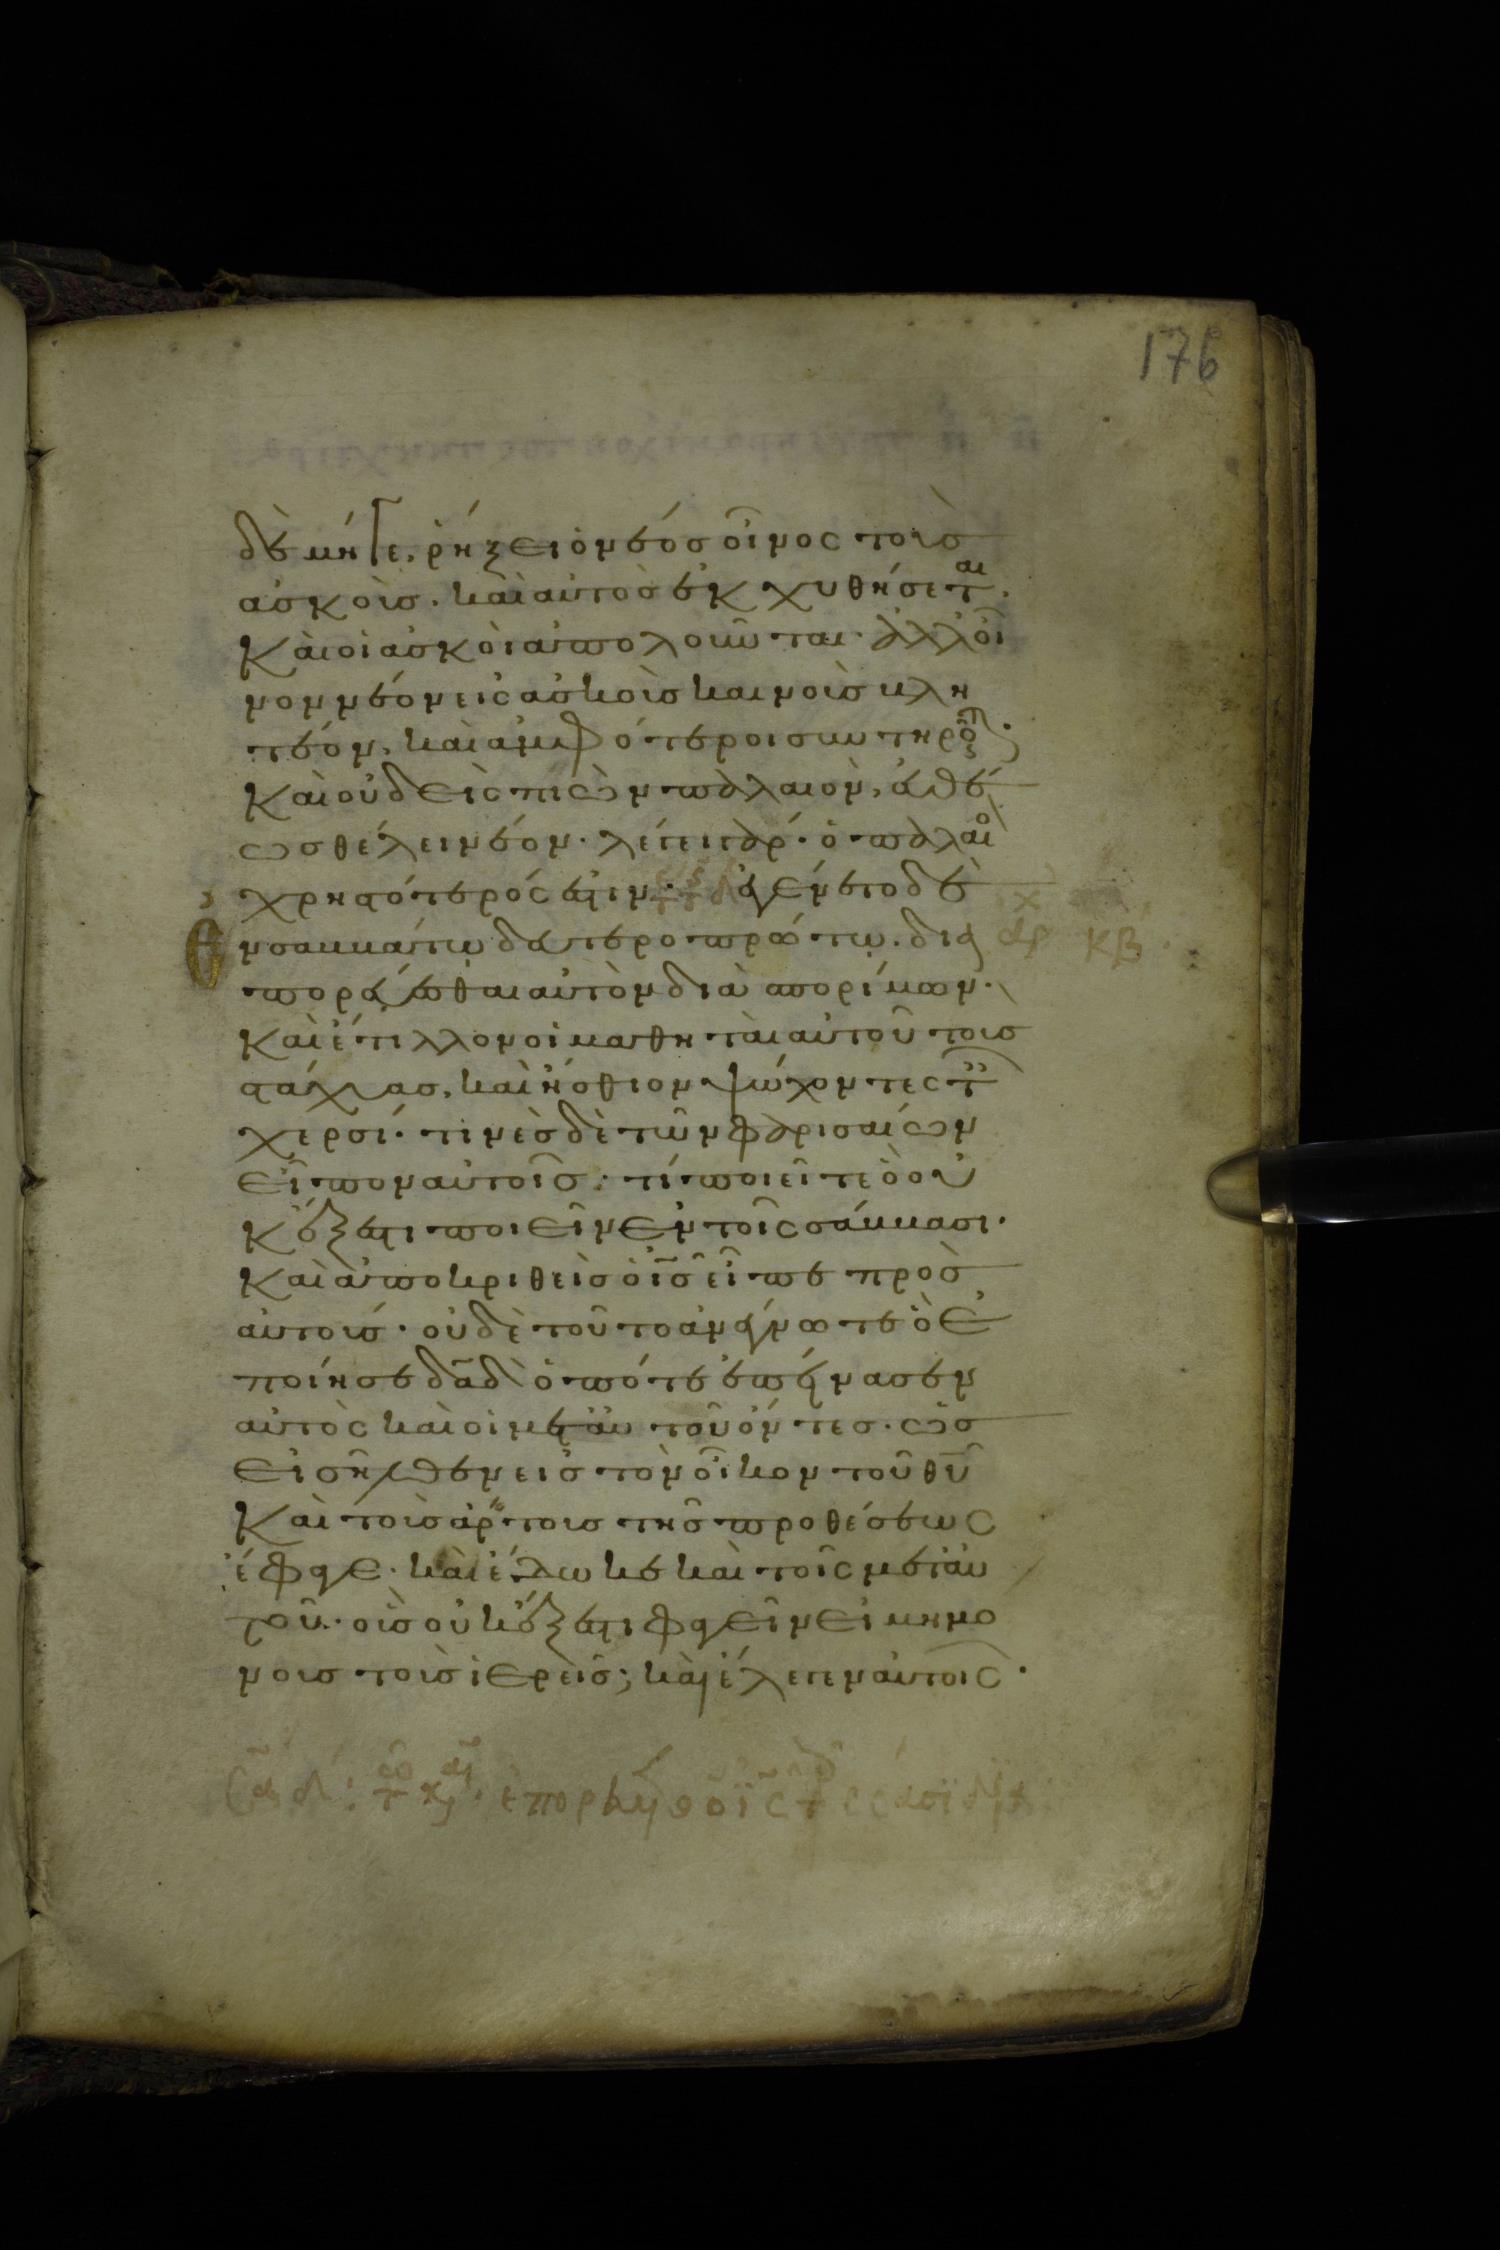 176
δὲ μήγε, ῥήξει ὁ νέος οἶνος τοὺς
ἀσκοὺς. καὶ αὐτὸς ἐκχυθήσεται.
Καὶ οἱ ἀσκοὶ ἀπολοῦνται. ἀλλ' οἶ
νον νέον εἰς ἀσκοὺς καινοὺς βλη
τέον, καὶ ἀμφότεροι συντηροῦ
Καὶ οὐδεὶς πιὼν παλαιὸν, εὐθέ
ως θέλει νέον. λέγει γάρ. ὁ παλαι
χρηστότερός ἐστιν. ἐγένετο δὲ
ἐν σαββάτῳ δευτεροπρώτῳ. δια αρ κβ
πορεύεσθαι αὐτὸν διὰ σπορίμων.
Καὶ ἔτιλλον οἱ μαθηταὶ αὐτοῦ τοὺς
στάχυας, καὶ ἤσθιον ψώχοντες τ
χερσί. τινὲς δὲ τῶν φαρισαίων
εἶπον αὐτοῖς. τί ποιεῖτε ὃ οὐ
κ ἔξεστι ποιεῖν ἐν τοῖς σάββασι.
Καὶ ἀποκριθεὶς ὁ ις εἶπε πρὸς
αὐτούς. οὐδὲ τοῦτο ἀνέγνωτε ὃ ἐ
ποίησε δαδ ὁπότε ἐπείνασεν
αὐτὸς καὶ οἱ μετ' αὐτοῦ ὄντες. ὡς
εἰσῆλθεν εἰς τὸν οἶκον τοῦ θυ
Καὶ τοὺς ἄρτους τῆς προθέσεως
ἔφαγε. καὶ ἔδωκε καὶ τοῖς μετ' αὐ
τοῦ. οὓς οὐκ ἔξεστι φαγεῖν εἰ μὴ μό
νους τοὺς ἱερεῖς; καὶ ἔλεγεν αὐτοῖς.